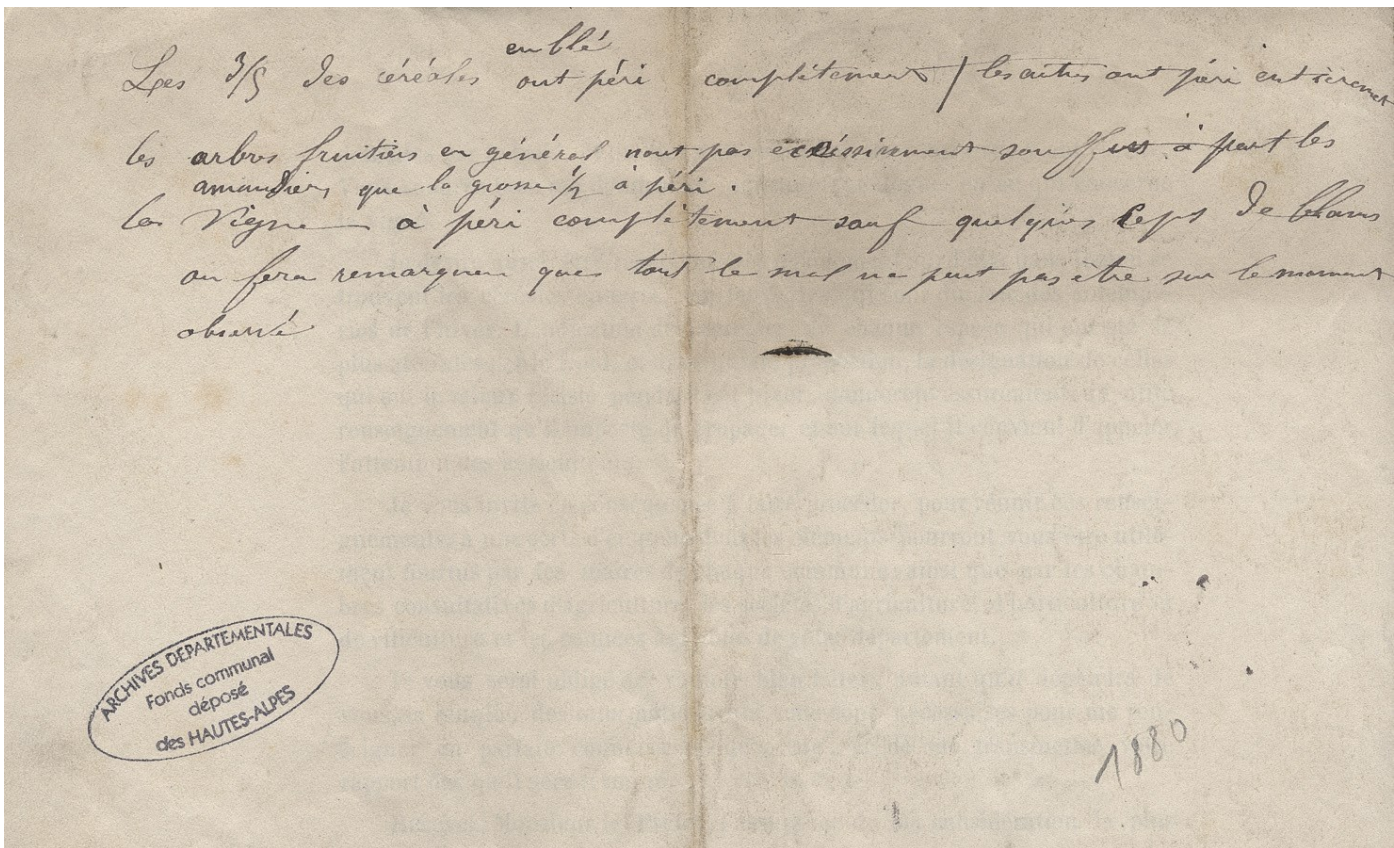 en blé
Les 3/5 des céréales ont péri complètement / les autres ont péri entièrement
les arbres fruitiers en général nont pas souffert à part les
amandiers que la grosse 1/2 à péri.
les Vigne à péri complètement sauf quelques Ceps de blanc
on fera remarquer que tout le mal ne peut pas etre sur le moment
observé
ARCHIVES DEPARTEMENTALES
Fonds communal
déposé
des HAUTES-ALPES
1880